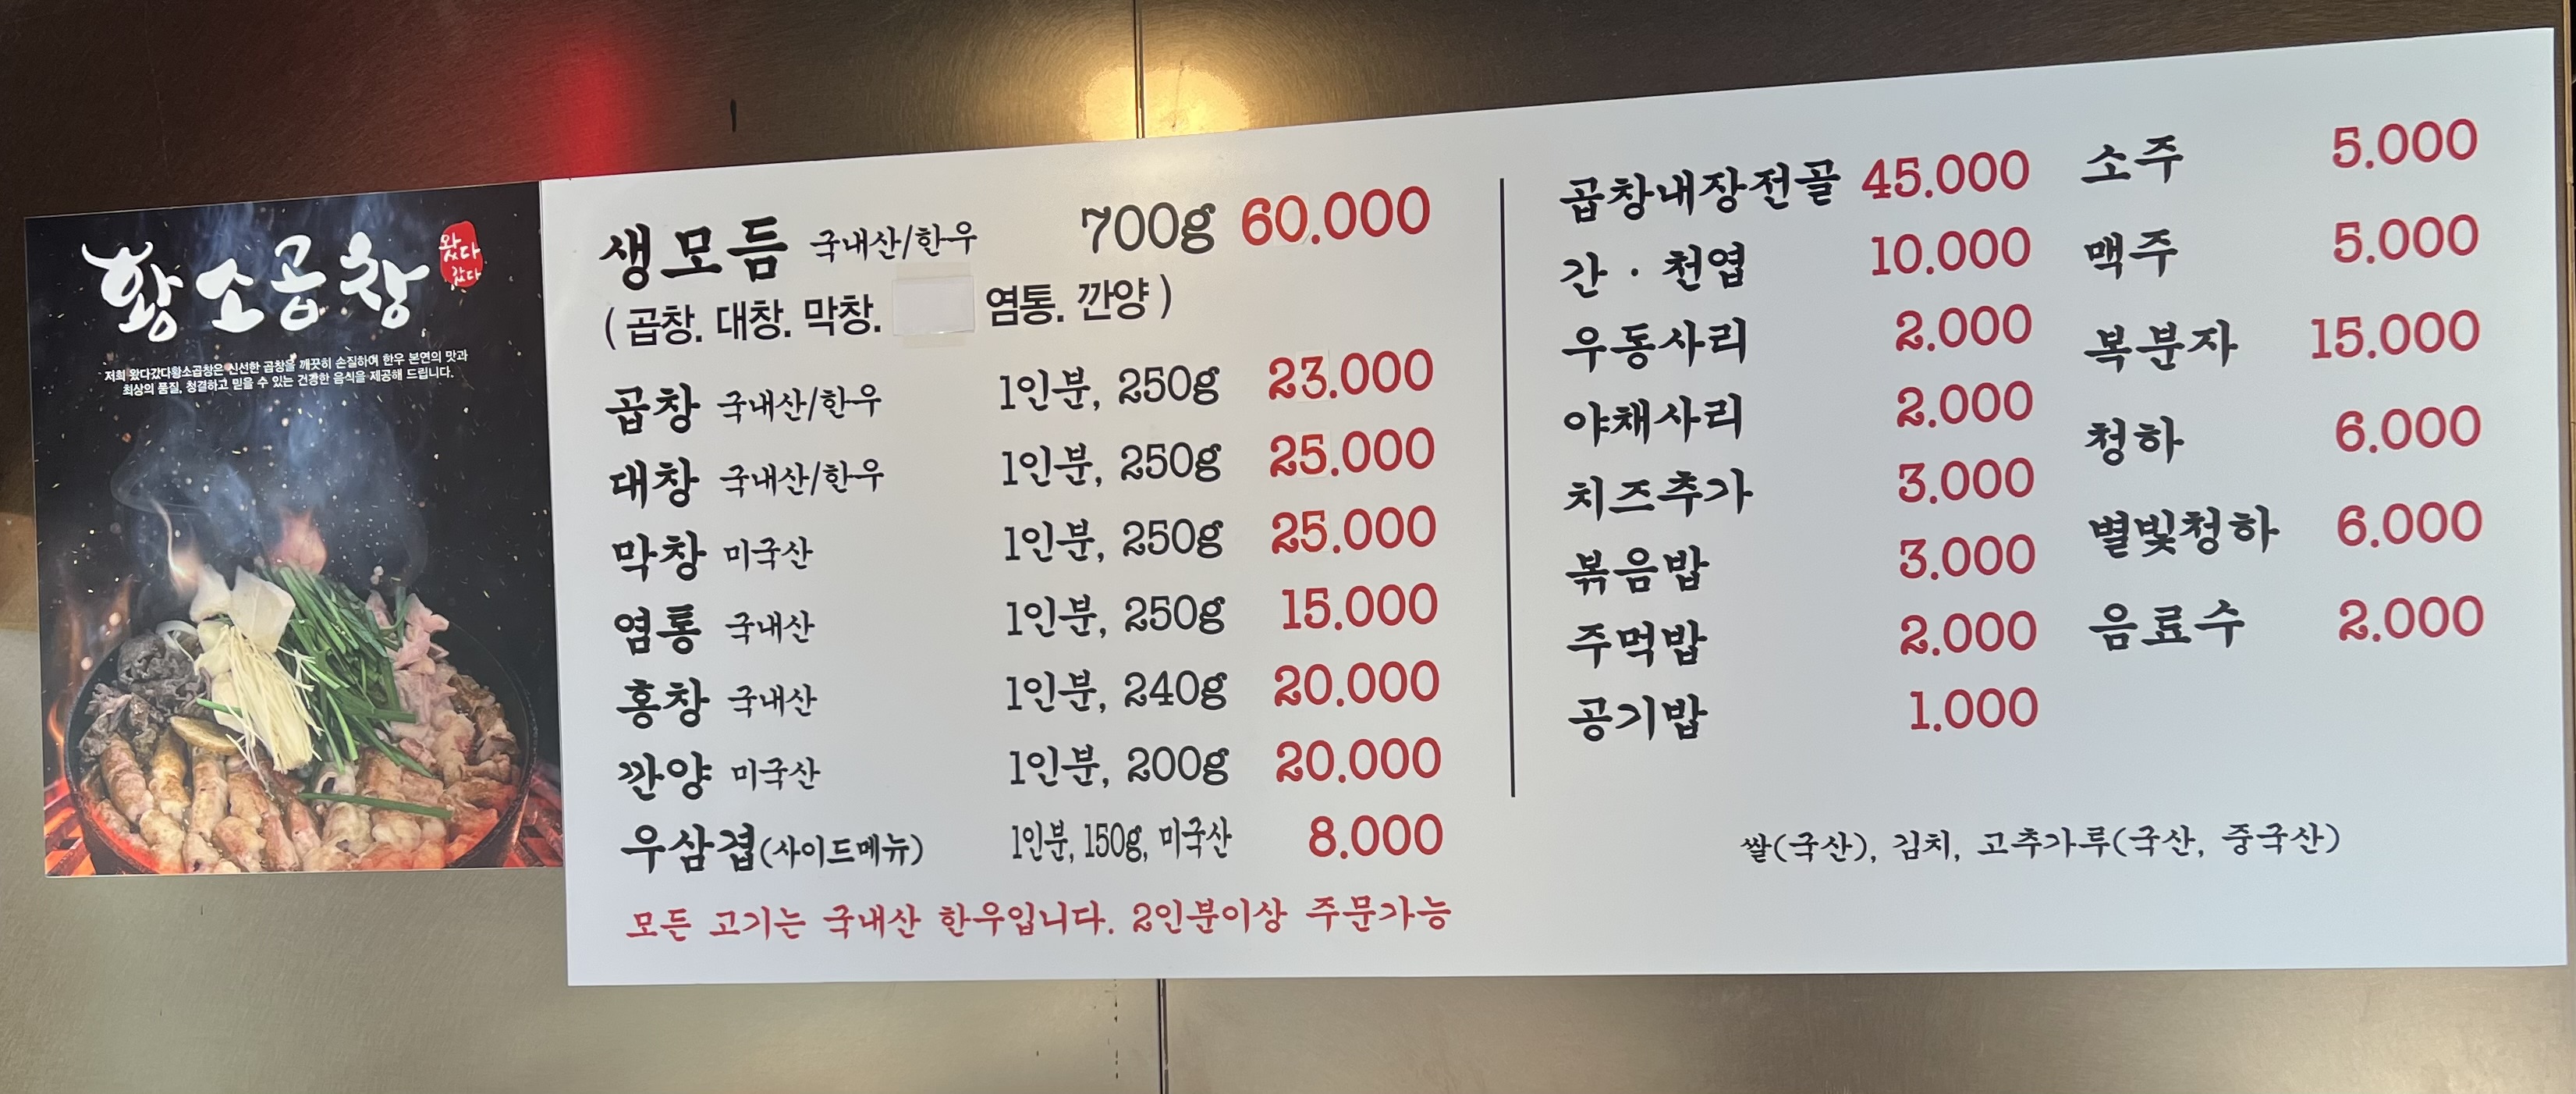 황소곱창
왔다
갔다
저희 왔다갔다황소곱창은 신선한 곱창을 깨끗히 손질하여 한우 본연의 맛과
최상의 품질, 청결하고 믿을 수 있는 건강한 음식을 제공해 드립니다.
생모듬 국내산/한우 700g 60.000
( 곱창. 대창. 막창. 염통. 깐양 )
곱창 국내산/한우 1인분, 250g 23.000
대창 국내산/한우 1인분, 250g 25.000
막창 미국산 1인분, 250g 25.000
염통 국내산 1인분, 250g 15.000
홍창 국내산 1인분, 240g 20.000
깐양 미국산 1인분, 200g 20.000
우삼겹(사이드메뉴) 1인분, 150g, 미국산 8.000
모든 고기는 국내산 한우입니다. 2인분이상 주문가능
곱창내장전골 45.000
간 · 천엽 10.000
우동사리 2.000
야채사리 2.000
치즈추가 3.000
볶음밥 3.000
주먹밥 2.000
공기밥 1.000
소주 5.000
맥주 5.000
복분자 15.000
청하 6.000
별빛청하 6.000
음료수 2.000
쌀(국산), 김치, 고추가루(국산, 중국산)